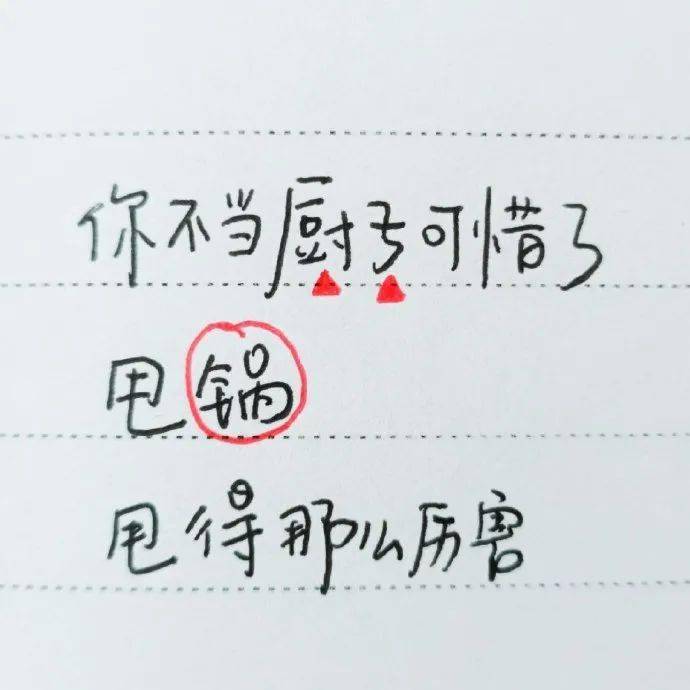 你不当厨子可惜了
甩锅
甩得那么厉害